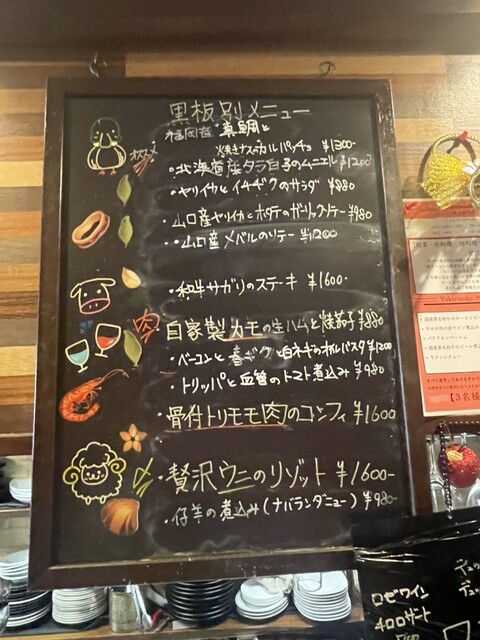 黒板別メニュー
福岡産 真鯛と
焼きナスのカルパッチョ ¥1300-
・北海道産タラ白子のムニエル ¥1200
・ヤリイカとイチヂクのサラダ ¥880
・山口産ヤリイカとホタテのガーリックソテー ¥980
・山口産メバルのソテー ¥1200
・和牛サガリのステーキ ¥1600-
肉
・自家製カモの生ハムと焼茄子 ¥880
・ベーコンと春ギクと白ネギのオルバスタ ¥1200
・トリッパと血管のトマト煮込み ¥980
・骨付トリモモ肉のコンフィ ¥1600
・贅沢ウニのリゾット ¥1600-
・仔羊の煮込み(ナバランダニュー) ¥980-
【3名様
ロゼワイン